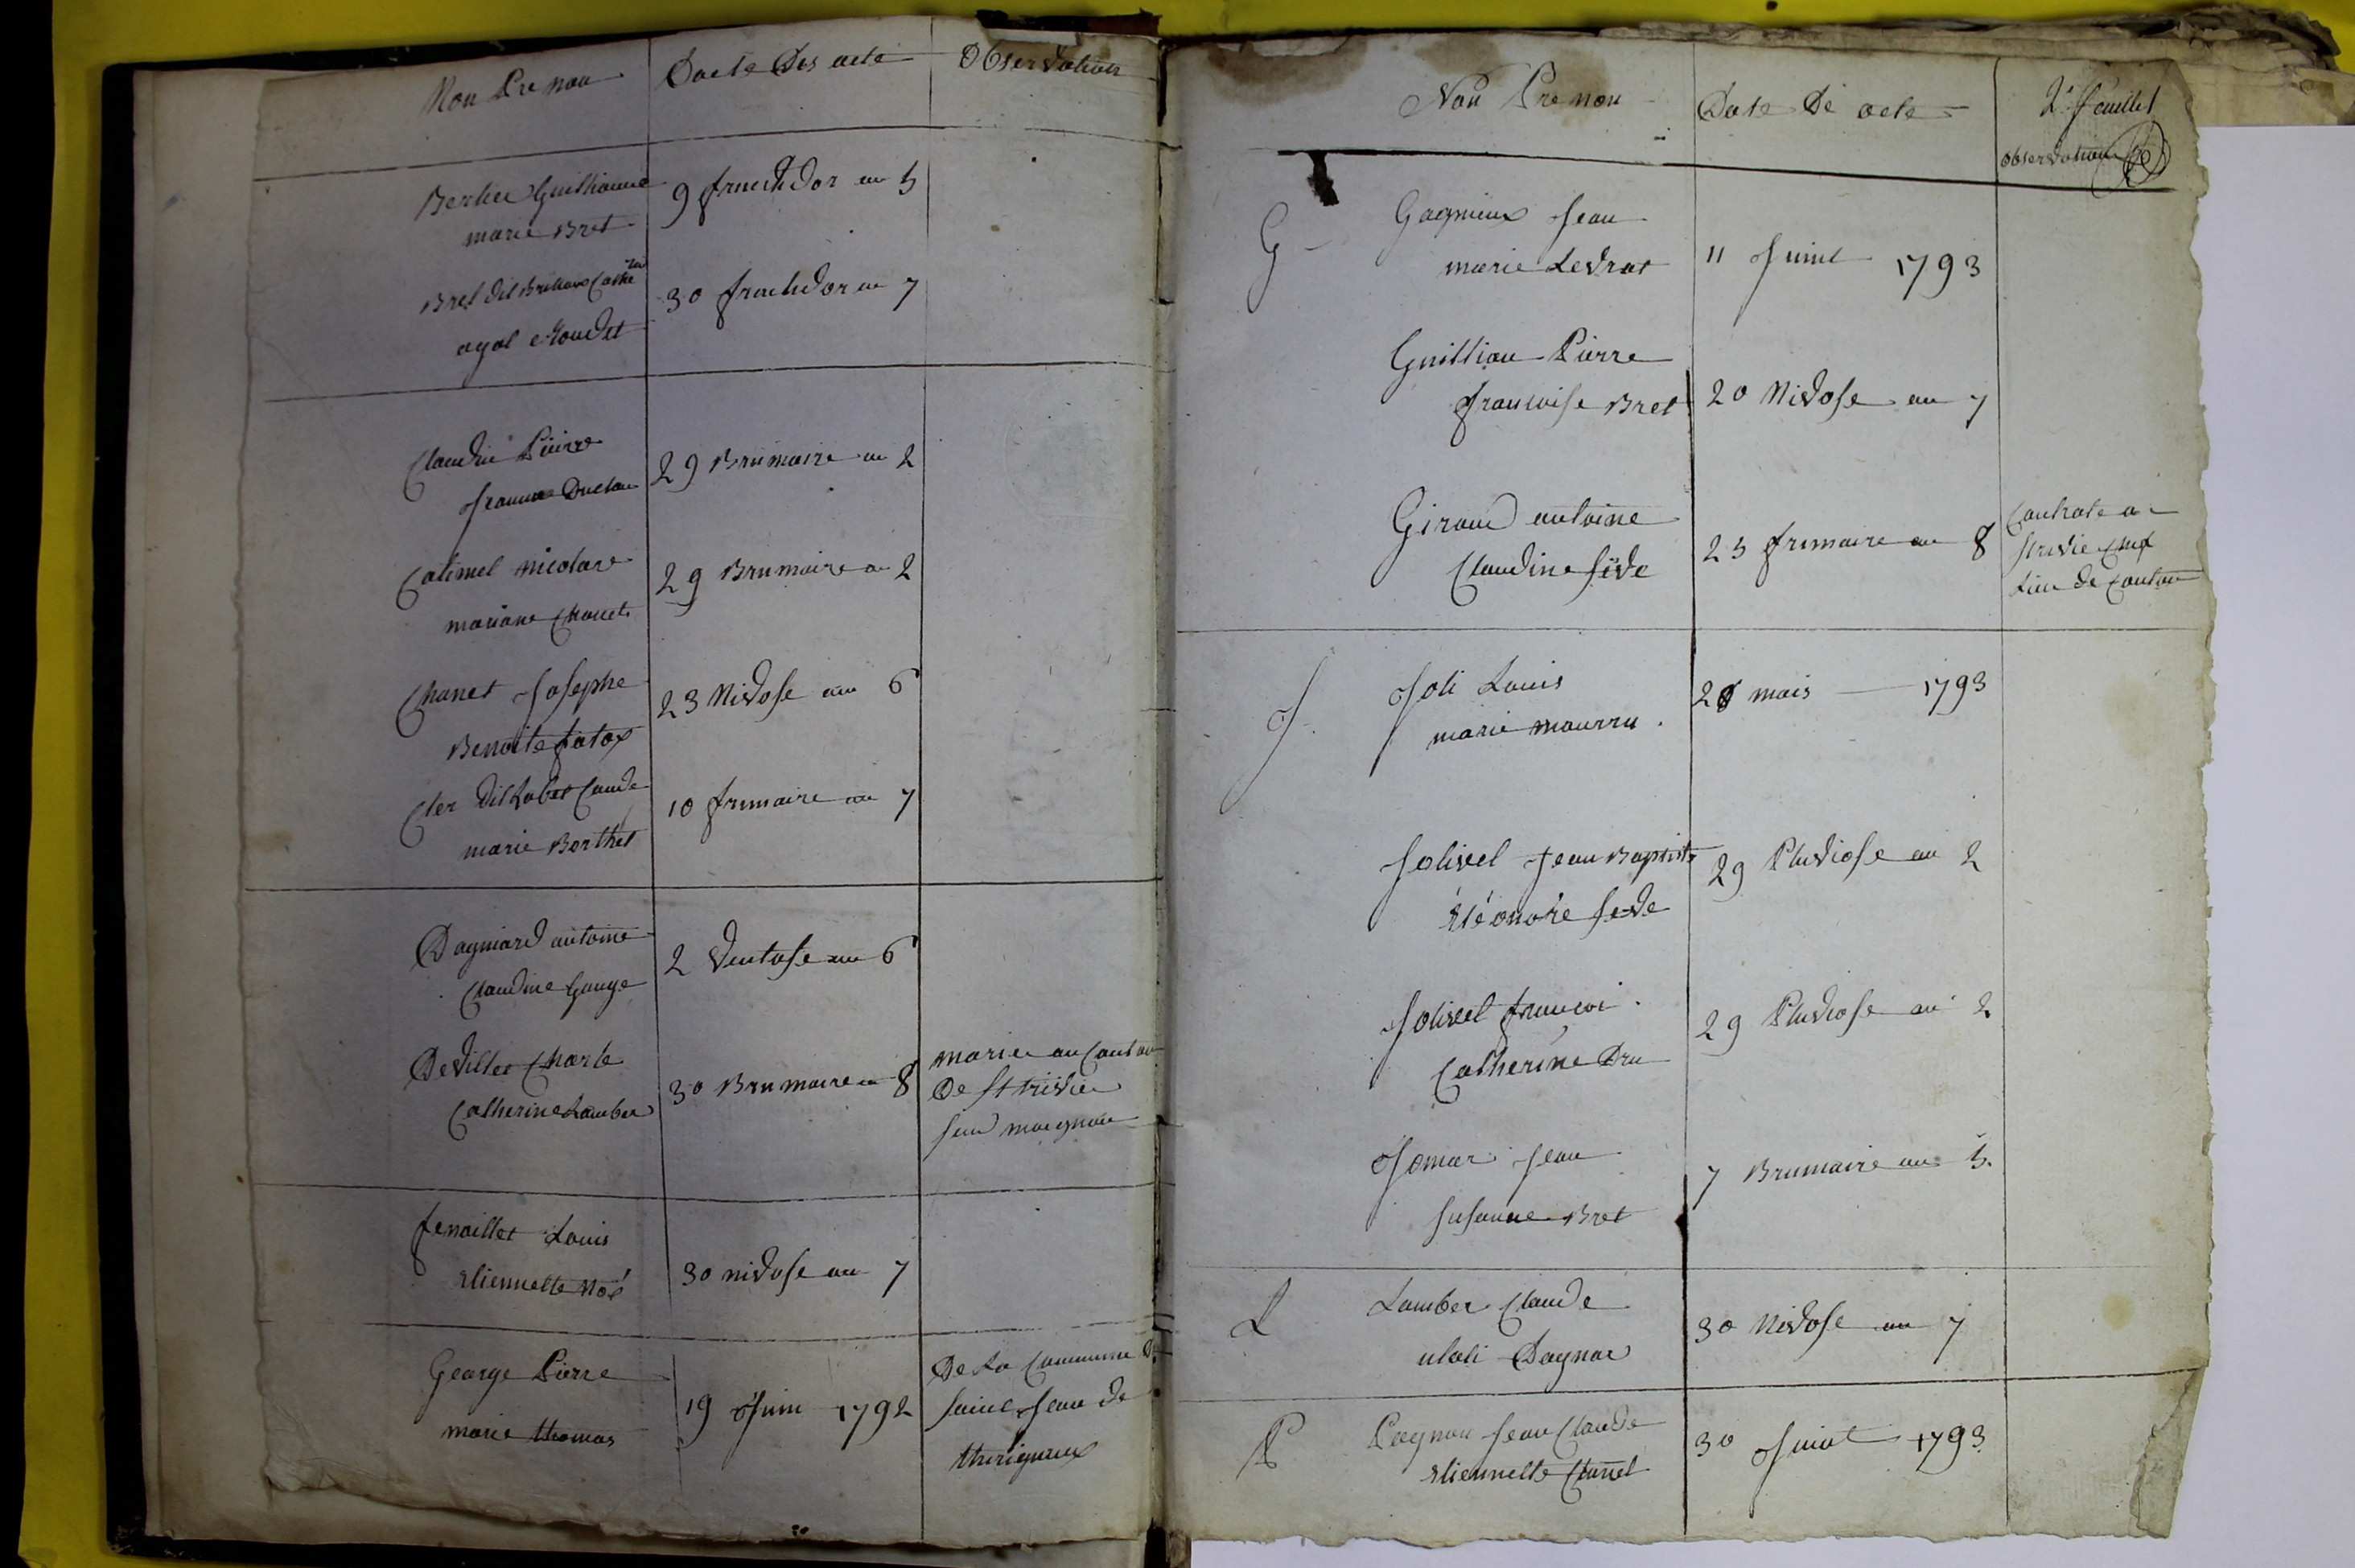 Nou Pre nou
Dacte Des acte
Observation
Berlier Guilliaume
marie Bret
9 fructidor an 5
Bret dit
30 fructidor an 7
agat
Claudin Pierre
Jeanne Duclou
29 Brumaire an 2
Catimel nicolas
mariane Chanet
29 Brumaire an 2
Chanet Josephe
Benoite fatox
23 Nivose an 6
Cler dit Labet Claude
marie Berthet
10 frimaire an 7
Dagniard antoine
Claudine Gauge
2 Ventose an 6
Deviller Charle
Catherine Lamber
30 Brumaire an 8
marier au Canton
De St trivier
sur moignan
fenaillet Louis
Etiennette Noé
30 nivose an 7
George Pierre
marie thomas
19 Juin 1792
De La Commune De
Saint Jean de
thurigneux
Nou Pre nou
Date De acte
2e feuillet
observation
G
Gagnieux Jean
marie Levrat
11 Juint 1793
Guilliau Pierre
francoise Bret
20 Nivose an 7
Giraud antoine
Claudine five
25 frimaire an 8
Contrate a
strivie chef
Lieu de Canton
J
Joli Louis
marie maurru
28 mais 1793
Jolivet Jean Baptiste
Eléonore seve
29 Pluviose an 2
Jolivet francoi
Catherine Dru
29 Pluviose an 2
Jomar Jean
susanne Bret
7 Brumaire an 5.
L
Lamber Claude
ulali Dagnar
30 Nivose an 7
P
Pagnon Jean Claude
Etiennette Chanel
30 Juint 1793